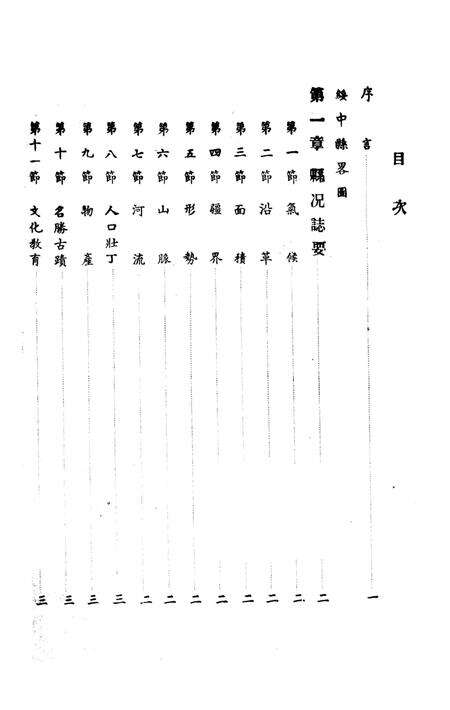 目次
序言 一
綏中縣畧圖
第一章 縣况誌要 二
第一節 氣候 二
第二節 沿革 二
第三節 面積 二
第四節 疆界 二
第五節 形勢 二
第六節 山脈 二
第七節 河流 二
第八節 人口壯丁 三
第九節 物產 三
第十節 名勝古蹟 三
第十一節 文化教育 三